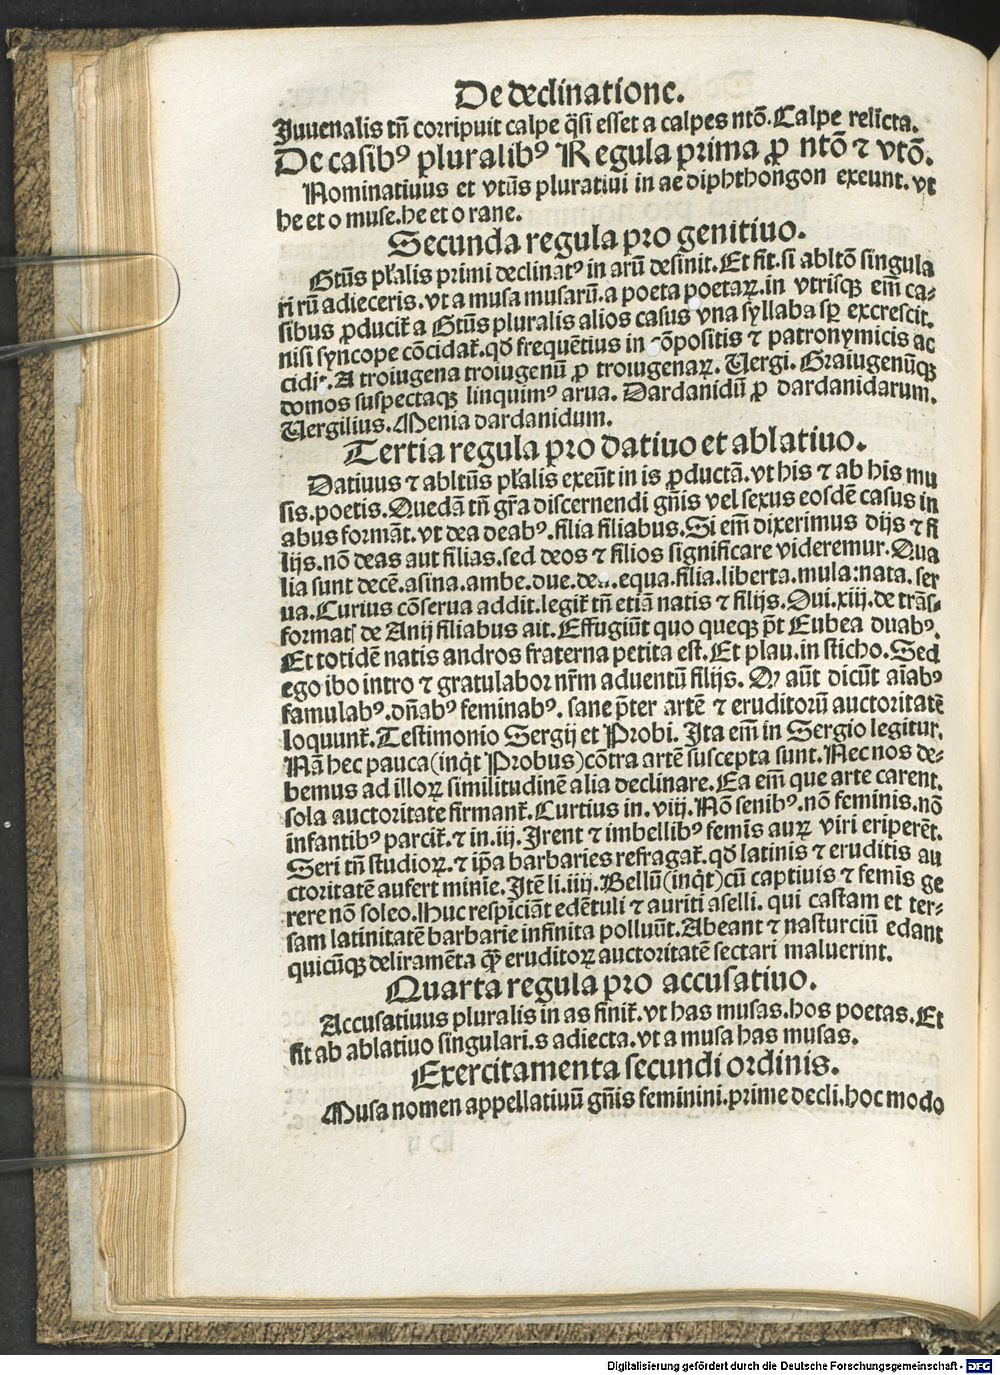 De declinatione.
Juuenalis tñ corripuit calpe q̃si esset a calpes ntõ. Calpe relicta.
De casibꝰ pluralibꝰ Regula prima ꝓ ntõ ⁊ vtõ.
Nominatiuus et vtũs pluratiui in ae diphthongon exeunt. vt
he et o muse. he et o rane.
Secunda regula pro genitiuo.
Gtũs pl̃alis primi declinatꝰ in arũ desinit. Et fit. si abltõ singula
ri rũ adieceris. vt a musa musarũ. a poeta poetaꝝ. in vtrisqꝫ em̃ ca⸗
sibus ꝓducit̃ a Gtũs pluralis alios casus vna syllaba sꝑ excrescit.
nisi syncope cõcidat̃. qđ frequẽtius in cõpositis ⁊ patronymicis ac
cidit. A troiugena troiugenũ ꝓ troiugenaꝝ. Vergi. Graiugenũqꝫ
domos suspectaqꝫ linquimꝰ arua. Dardanidũ ꝓ dardanidarum.
Vergilius. Menia dardanidum.
Tertia regula pro datiuo et ablatiuo.
Datiuus ⁊ abltũs pl̃alis exeũt in is ꝓductã. vt his ⁊ ab his mu
sis. poetis. Quedã tñ gr̃a discernendi gñis vel sexus eosdẽ casus in
abus formãt. vt dea deabꝰ. filia filiabus. Si em̃ dixerimus dijs ⁊ fi
lijs. nõ deas aut filias. sed deos ⁊ filios significare videremur. Qua
lia sunt decẽ. asina. ambe. due. dea. equa. filia. liberta. mula: nata. ser
ua. Curius cõserua addit. legit̃ tñ etiã natis ⁊ filijs. Oui. xiij. de trãs⸗
format̃ de Anij filiabus ait. Effugiũt quo queqꝫ põt Eubea duabꝰ.
Et totidẽ natis andros fraterna petita est. Et plau. in sticho. Sed
ego ibo intro ⁊ gratulabor nr̃m aduentũ filijs. Qꝫ aũt dicũt aĩabꝰ
famulabꝰ. dñabꝰ feminabꝰ. sane p̃ter artẽ ⁊ eruditorũ auctoritatẽ
loquunt̃. Testimonio Sergij et Probi. Ita em̃ in Sergio legitur.
Nã hec pauca (inq̇t Probus) cõtra artẽ suscepta sunt. Nec nos de⸗
bemus ad illoꝝ similitudinẽ alia declinare. Ea em̃ que arte carent.
sola auctoritate firmant̃. Curtius in. viij. Nõ senibꝰ. nõ feminis. nõ
infantibꝰ parcit̃. ⁊ in. iij. Irent ⁊ imbellibꝰ femĩs auꝝ viri eriperẽt.
Seri tñ studioꝝ. ⁊ ip̃a barbaries refragat̃. qđ latinis ⁊ eruditis au
ctoritatẽ aufert minĩe. Itẽ li. iiij. Bellũ (inq̇t) cũ captiuis ⁊ femĩs ge
rere nõ soleo. Huc respiciãt edẽtuli ⁊ auriti aselli. qui castam et ter⸗
sam latinitatẽ barbarie infinita polluũt. Abeant ⁊ nasturciũ edant
quicũqꝫ deliramẽta qꝫ̃ eruditoꝝ auctoritatẽ sectari maluerint.
Quarta regula pro accusatiuo.
Accusatiuus pluralis in as finit̃. vt has musas. hos poetas. Et
fit ab ablatiuo singulari. s adiecta. vt a musa has musas.
Exercitamenta secundi ordinis.
Musa nomen appellatiuũ gñis feminini. prime decli. hoc modo
Digitalisierung gefördert durch die Deutsche Forschungsgemeinschaft - DFG